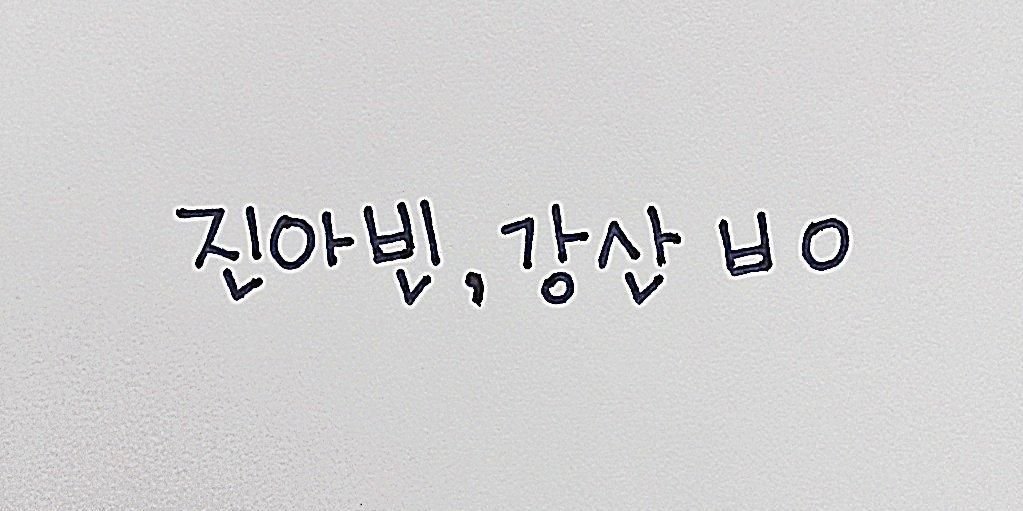 진아빈, 강산 ㅂㅇ